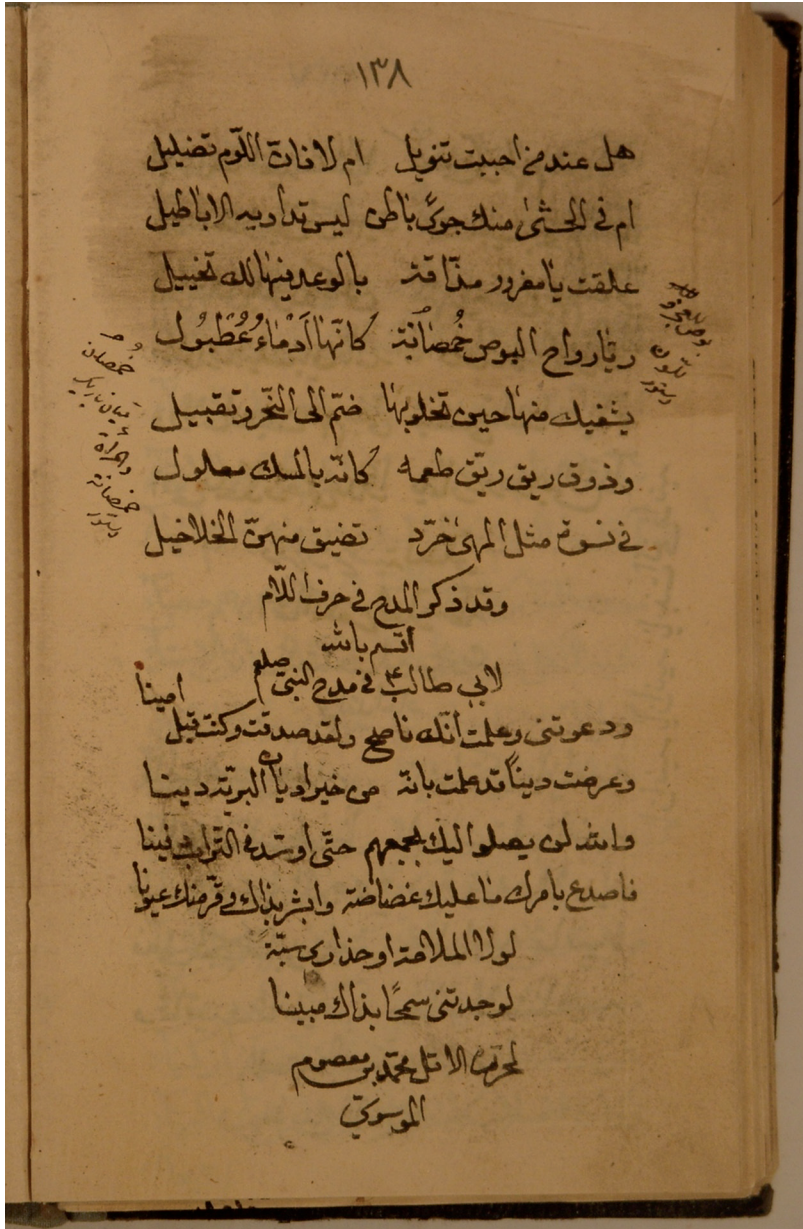 ١٣٨
هل عند من احببت تنويل ام لا فان اللّوم تضليل
ام فى الحشىٰ منك جوىً باطن ليس تداويه الاباطيل
علقت يا مغرور مذّاقة بالوعد منها لك تخييل
ريّا رواح البوص خُمصَانَة كانّها اَدْمَاءُ عُطْبُول
يشفيك منها حين تخلو بها ضمّ الى النّحر وتقبيل
وذوق ريق ريّق طعمه كانّه بالمسك معلول
فى نسوة مثل المهىٰ خرّد تضيق منهنّ الخلاخيل
وقد ذكر المدح فى حرف اللّام
لابى طالب ع فى مدح النبى صلعم
امينا
ودعوتنى وعلمت أنّك ناصح ولقد صدقت وكنت قبل
وعرضت ديناً قد علمت بانه من خير اديان البريّة دينا
والله لن يصلوا اليك بجمعهم حتّى اوسّد فى التّراب دفينا
فاصدع بامرك ما عليك غضاضة وابشر بذاك وقرّ منك عيونا
لولا الملامة او حذارى سبّة
لوجدتنى سمحًا بذاك مبينا
لمحرّره الاقل محمّد بن معصوم
الموسوىّ
خُمصان
ميان باريك
خمصانة